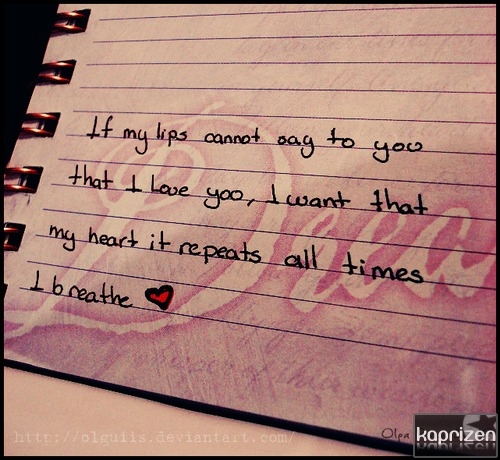 If my lips cannot say to you
that I love you, I want that
my heart it repeats all times
I breathe
Drea
http://olguiis.deviantart.com/
Olga
kaprizen